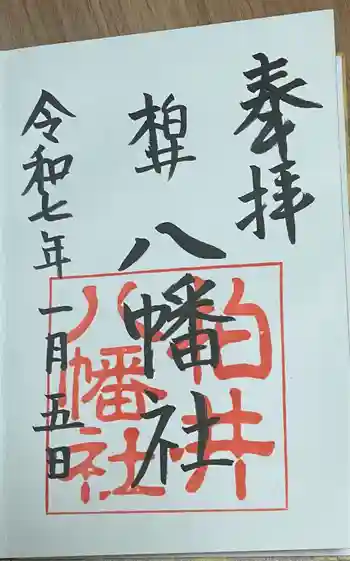 奉拝
柏井
八幡社
令和七年一月五日
柏井
八幡社